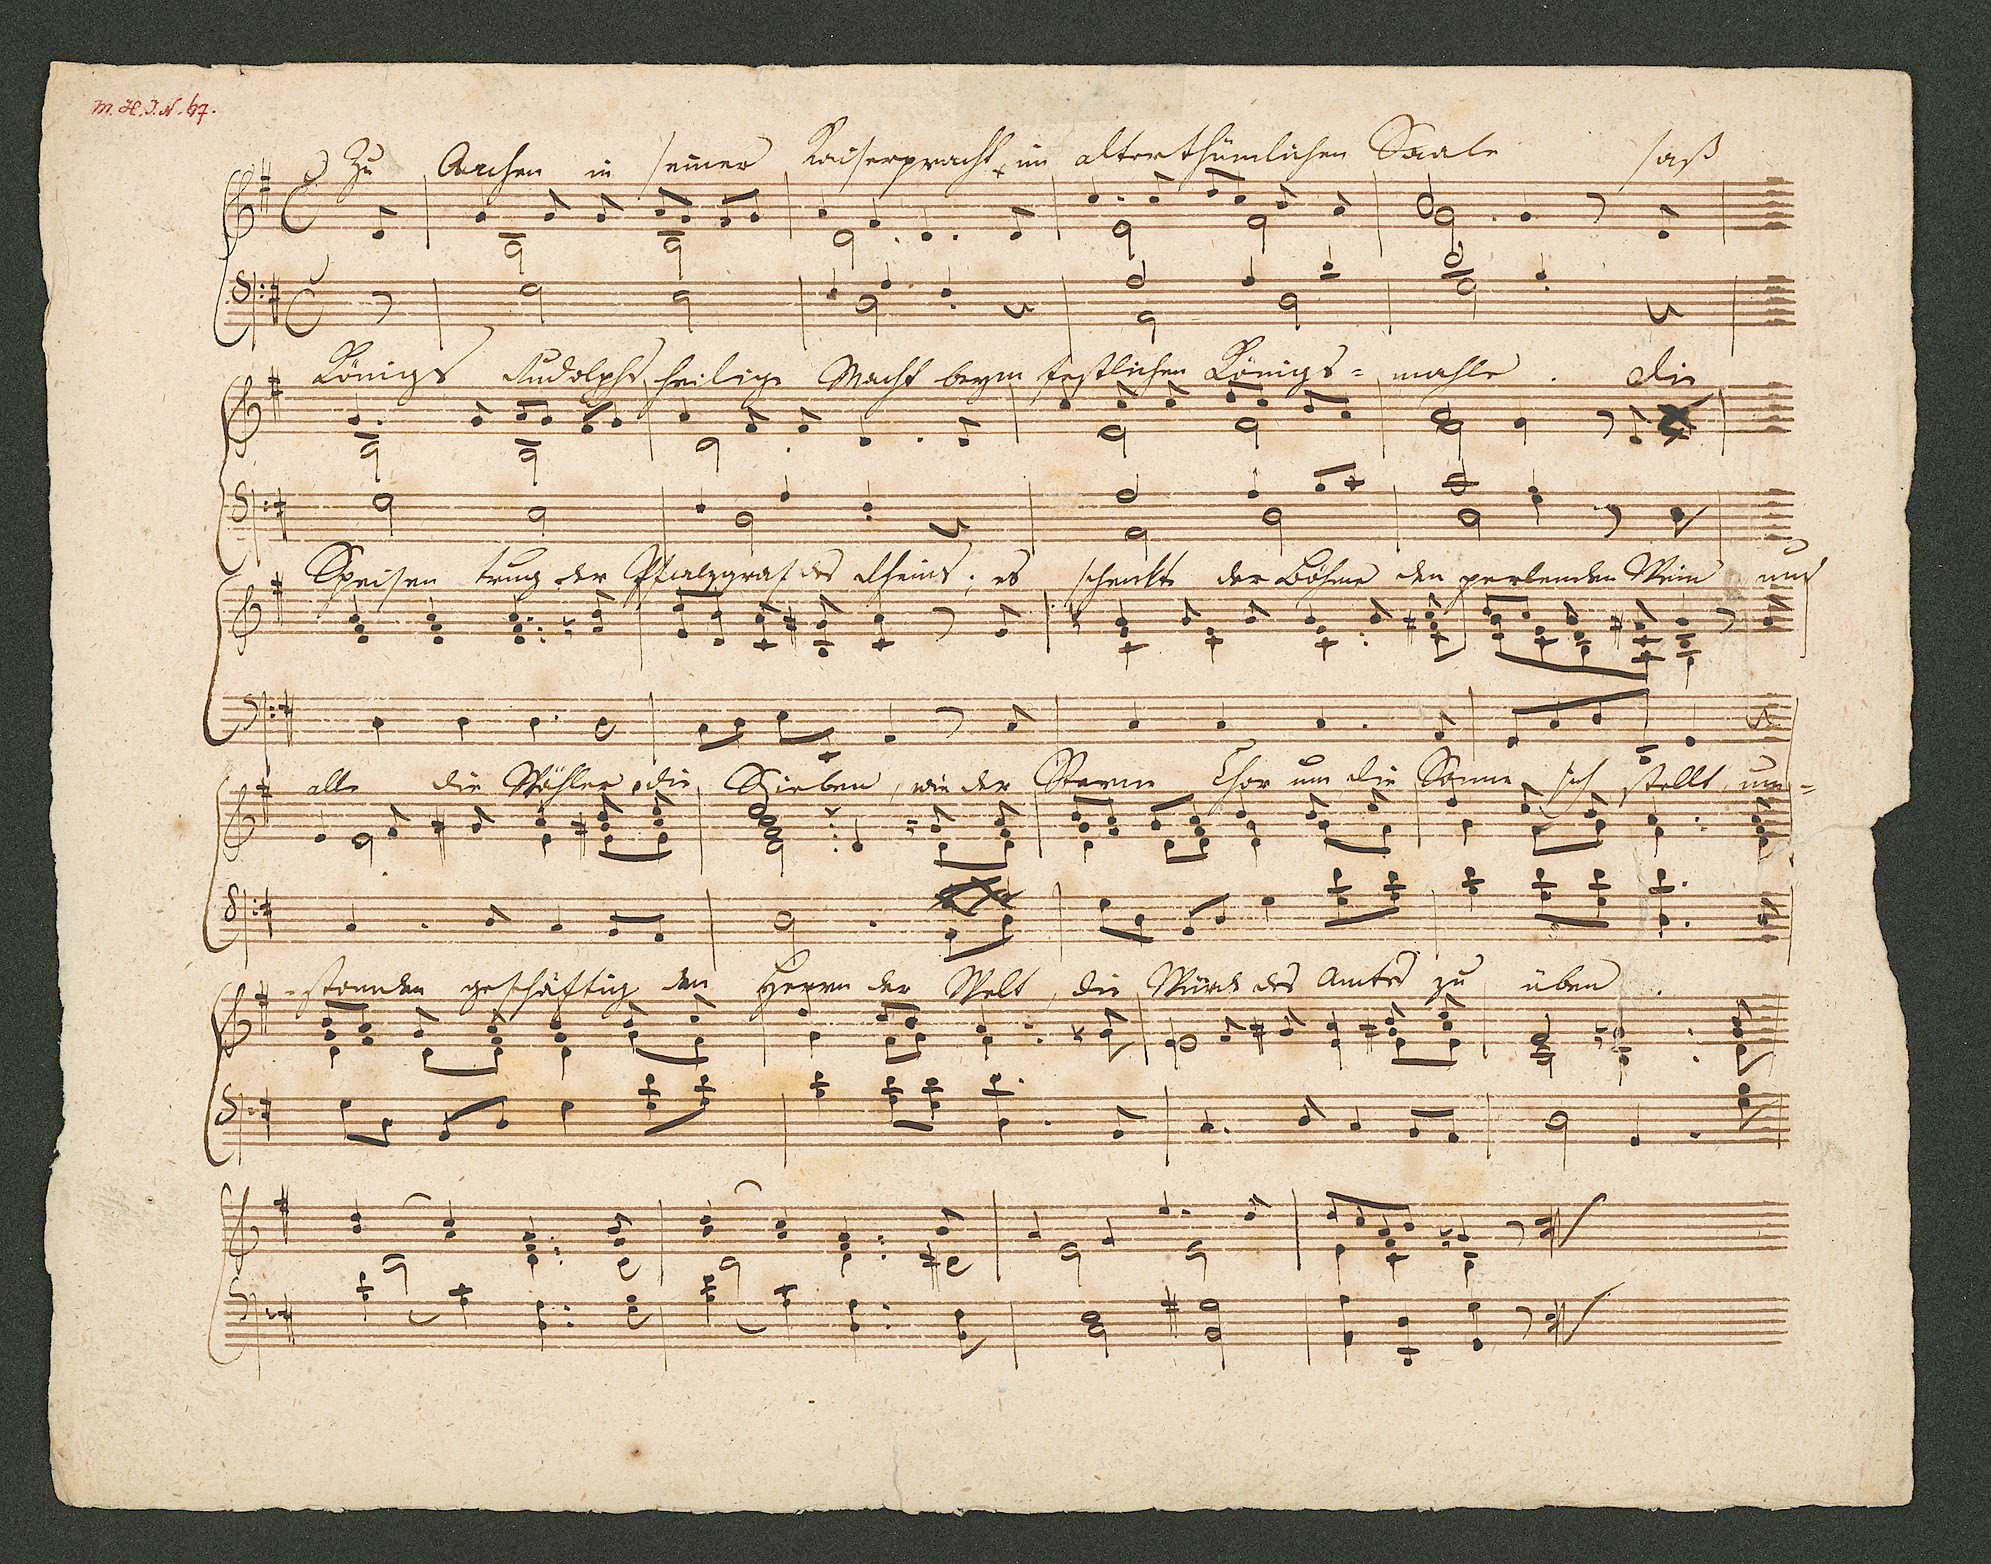 M. H. I. N. 67.
Zu Aachen in seiner Kaiserpracht, im alterthümlichen Saale saß
Königs Rudolphs heilige Macht beym festlichen Königs=mahle. Die
Speisen trug der Pfalzgraf des Rheins, es schenkte der Böhme den perlenden Wein und
alle die Wähler, die Sieben, wie der Sterne Chor um die Sonne sich stellt, um=
-standen geschäftig den Herrn der Welt, die Würde des Amtes zu üben.